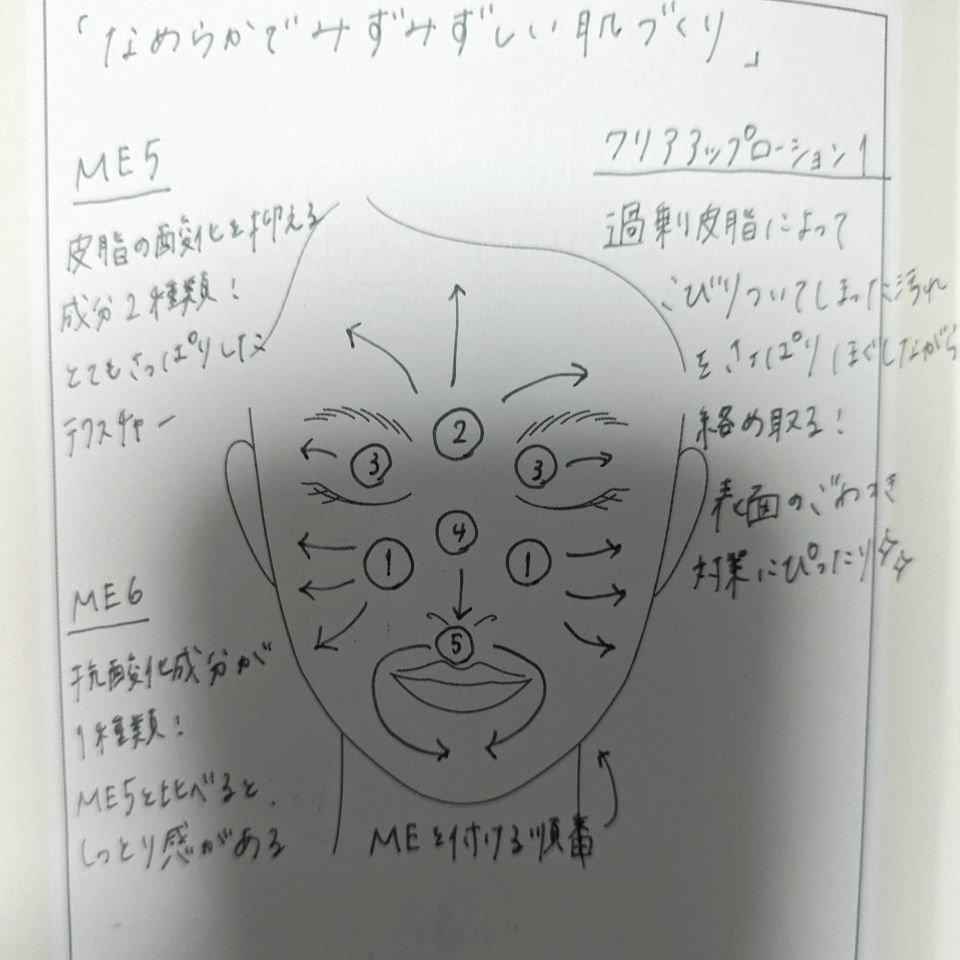 「なめらかでみずみずしい肌づくり」
ME5
皮脂の酸化を抑える
成分2種類！
とてもさっぱりした
テクスチャー
クリアアップローション1
過剰皮脂によって
こびりついてしまった汚れ
をさっぱりほぐしながら
絡め取る！
表面のごわつき
対策にぴったり
②
③ ③
④
① ①
⑤
ME6
抗酸化成分が
1種類！
ME5と比べると、
しっとり感がある
MEを付ける順番